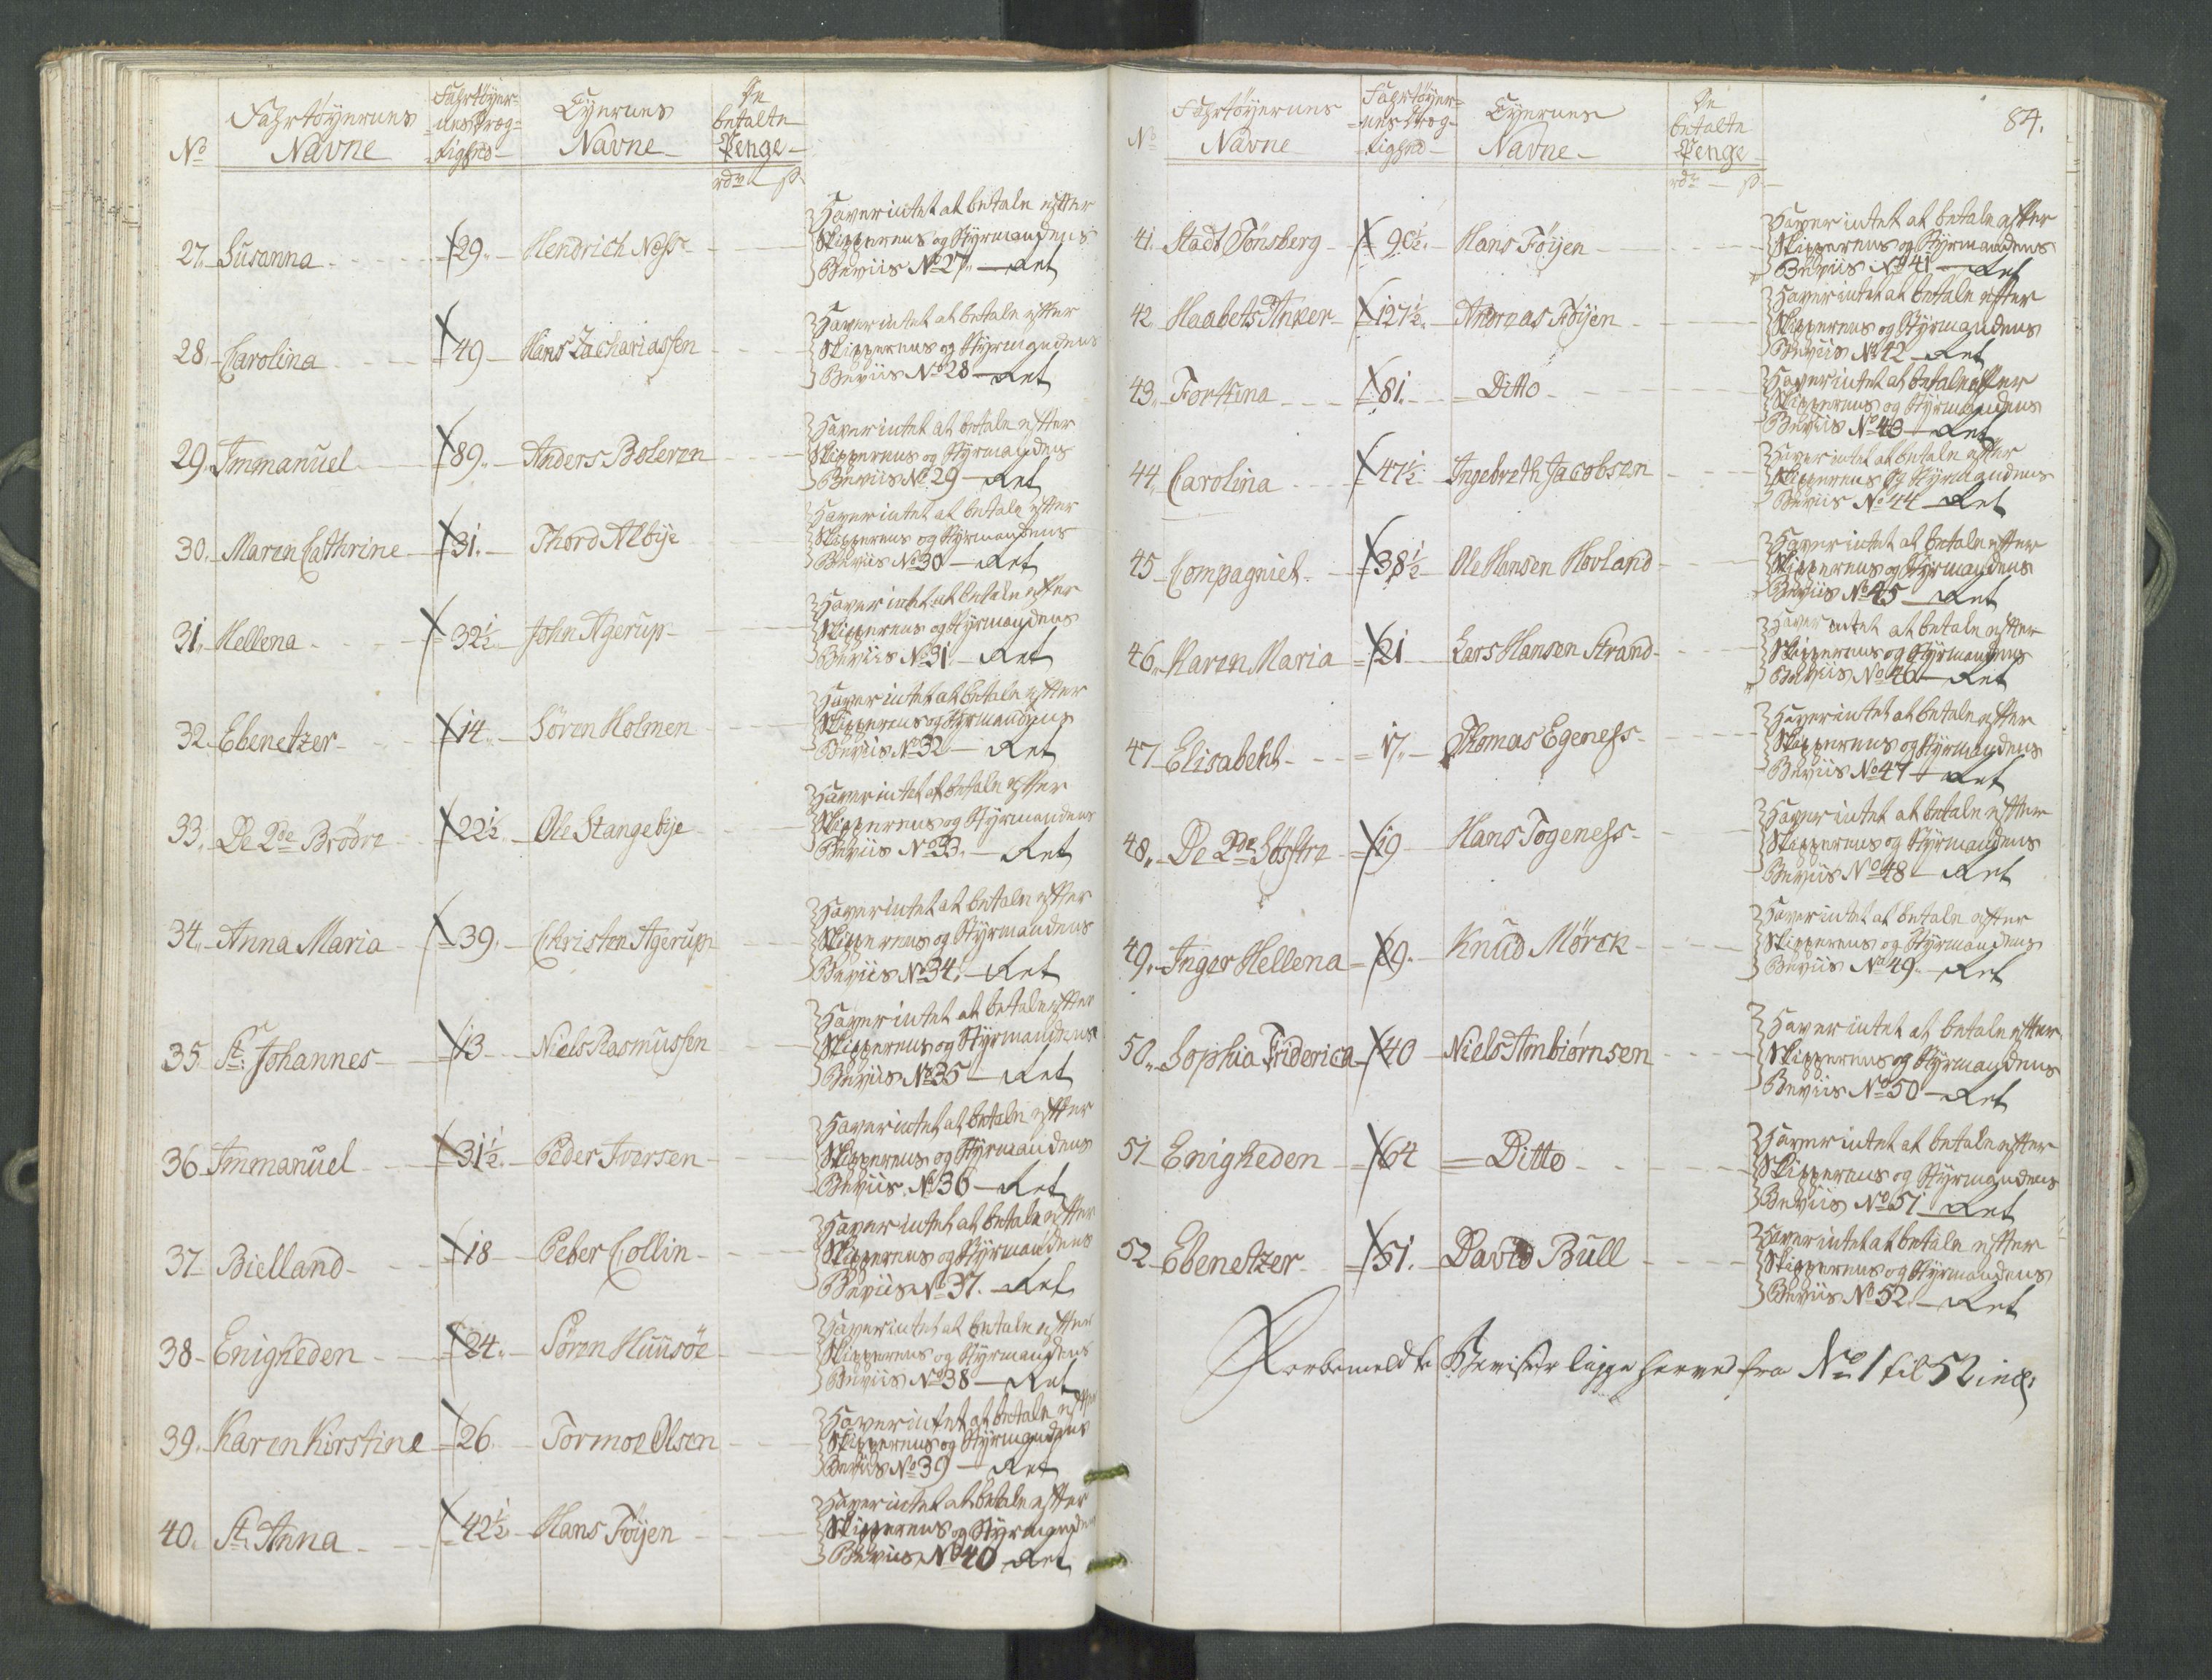 No Fahrtöyernes Navne Fahrtöyernes Dræg-tighed Eyernes Navne De betalte Penge
rdr ß
27. Susanna 29. Hendrich Ness Haver intet at betale efter
Skipperens og Styrmandens
Beviis No 27. Ret
28. Carolina 49 Hans Zachariassen Haver intet at betale efter
Skipperens og Styrmandens
Beviis No 28 Ret
29. Immanuel 89. Anders Boleren Haver intet at betale efter
Skipperens og Styrmandens
Beviis No 29 Ret
30. Maren Cathrine 31. Thord Albye Haver intet at betale efter
Skipperens og Styrmandens
Beviis No 30 Ret
31. Hellena 32½ John Agerup Haver intet at betale efter
Skipperens og Styrmandens
Beviis No 31. Ret
32. Ebenetzer 14. Sören Holmen Haver intet at betale efter
Skipperens og Styrmandens
Beviis No 32 Ret
33. De 2de Brödre 22½ Ole Stangebye Haver intet at betale efter
Skipperens og Styrmandens
Beviis No 33. Ret
34. Anna Maria 39. Christen Agerup Haver intet at betale efter
Skipperens og Styrmandens
Beviis No 34. Ret
35. St: Johannes 13 Niels Rasmussen Haver intet at betale efter
Skipperens og Styrmandens
Beviis No 35 Ret
36. Immanuel 31½ Peder Iversen Haver intet at betale efter
Skipperens og Styrmandens
Beviis No 36 Ret
37 Bielland 18 Peter Collin Haver intet at betale efter
Skipperens og Styrmandens
Beviis No 37. Ret
38 Enigheden 24. Sören Huusöe Haver intet at betale efter
Skipperens og Styrmandens
Beviis No 38 Ret
39. Karen Kirstine 26. Tormoe Olsen Haver intet at betale efter
Skipperens og Styrmandens
Beviis No 39 Ret
40. St: Anna 42½ Hans Föyen Haver intet at betale efter
Skipperens og Styrmandens
Beviis No 40 Ret
84.
No Fahrtöyernes Navne Fahrtöyernes Dræg-tighed Eyernes Navne De betalte Penge
rdr ß
41. Stadt Tönsberg 90½ Hans Föyen Haver intet at betale efter
Skipperens og Styrmandens
Beviis No 41 Ret
42. Haabets Anker 127½ Andreas Föyen Haver intet at betale efter
Skipperens og Styrmandens
Beviis No 42 Ret
43. Fortuna 81. Ditto Haver intet at betale efter
Skipperens og Styrmandens
Beviis No 43 Ret
44. Carolina 47½ Ingebreth Jacobsen Haver intet at betale efter
Skipperens og Styrmandens
Beviis No 44 Ret
45 Compagniet 38½ Ole Hansen Hovland Haver intet at betale efter
Skipperens og Styrmandens
Beviis No 45 Ret
46. Karen Maria 21 Lars Hansen Strand Haver intet at betale efter
Skipperens og Styrmandens
Beviis No 46 Ret
47 Elisabeht 17. Thomas Egeness Haver intet at betale efter
Skipperens og Styrmandens
Beviis No 47 Ret
48. De 2de Söstre 19 Hans Togeness Haver intet at betale efter
Skipperens og Styrmandens
Beviis No 48 Ret
49. Inger Hellena 29. Knud Mörck Haver intet at betale efter
Skipperens og Styrmandens
Beviis No 49. Ret
50. Sophia Friderica 40 Niels Ambiörnsen Haver intet at betale efter
Skipperens og Styrmandens
Beviis No 50 Ret
51 Enigheden 64 Ditto Haver intet at betale efter
Skipperens og Styrmandens
Beviis No 51 Ret
52 Ebenetzer 51. David Bull Haver intet at betale efter
Skipperens og Styrmandens
Beviis No 52. Ret
Forbemeldte Beviser ligge herved fra No 1 til 52 incl: